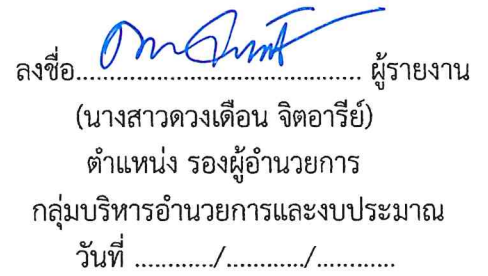 ลงชื่อ.......................................... ผู้รายงาน
(นางสาวดวงเดือน จิตอารีย์)
ตำแหน่ง รองผู้อำนวยการ
กลุ่มบริหารอำนวยการและงบประมาณ
วันที่ ............/............/............